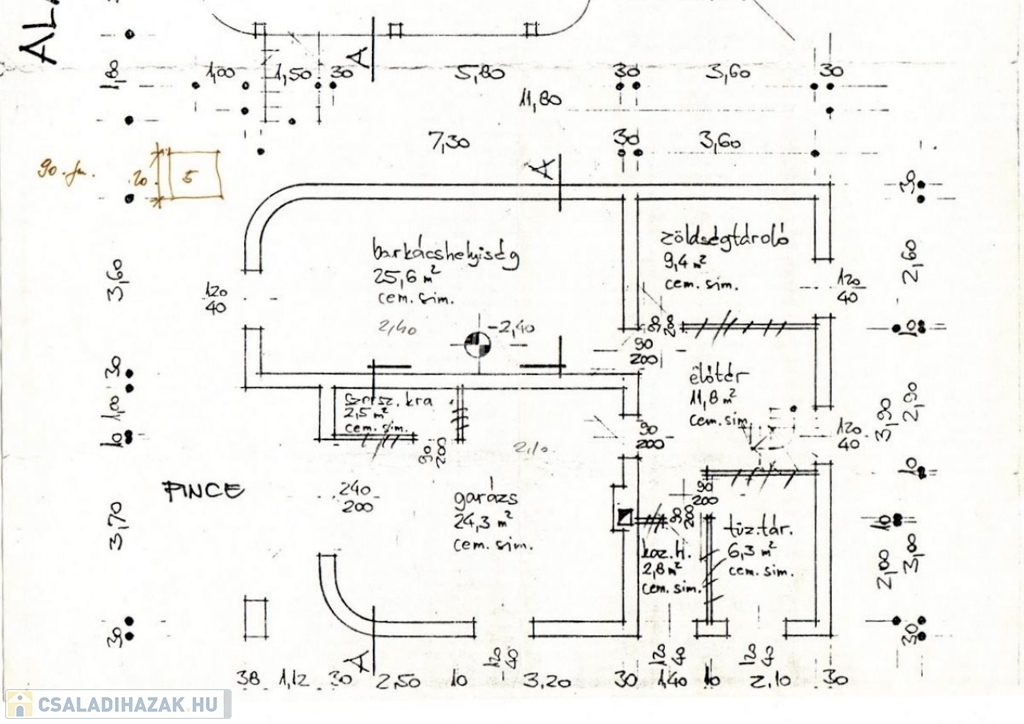 ALA
1,80
1,00 1,50 30 5,80 30 3,60 30
A
11,80
7,30 30 3,60
A
90. fm. 20. 5
30
barkácshelyiség
25,6 m²
cem. sim.
2,40
-2,40
zöldségtároló
9,4 m²
cem. sim.
120
40
120
40
3,60
2,60
80
200
90
200
10
előtér
11,8 m²
cem. sim.
120
40
3,90
2,90
30
1,00
10
szersz. kra
2,5 m²
cem. sim.
90
200
2,10
90
200
10
PINCE
240
200
garázs
24,3 m²
cem. sim.
90
200
90
200
10
3,70
kaz. h.
2,8 m²
cem. sim.
tüz. tár.
6,3 m²
cem. sim.
2,00
3,00
30
30
A
120
40
120
40
120
40
38 1,12 30 2,50 10 3,20 30 1,40 10 2,10 30
CSALADIHAZAK.HU